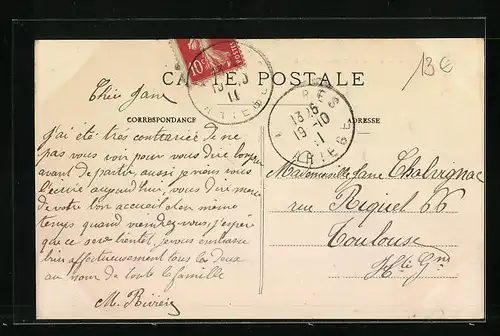 13€
10c
POSTES
CARTE POSTALE
11
ARIEGE
13 15
19-10
11
ARIEGE
CORRESPONDANCE
ADRESSE
Chère Jane
J'ai été très contrariée de ne
pas vous voir pour vous dire bonjour
avant de partir, aussi je viens vous
l'écrire aujourd'hui, vous dire merci
de votre bon accueil et en même
temps quand viendrez-vous, j'espère
que ce sera bientôt, je vous embrasse
bien affectueusement tous les deux
au nom de toute la famille
M.
Mademoiselle Jane Chalvignac
rue Riquet 66
Toulouse
Hte Gne